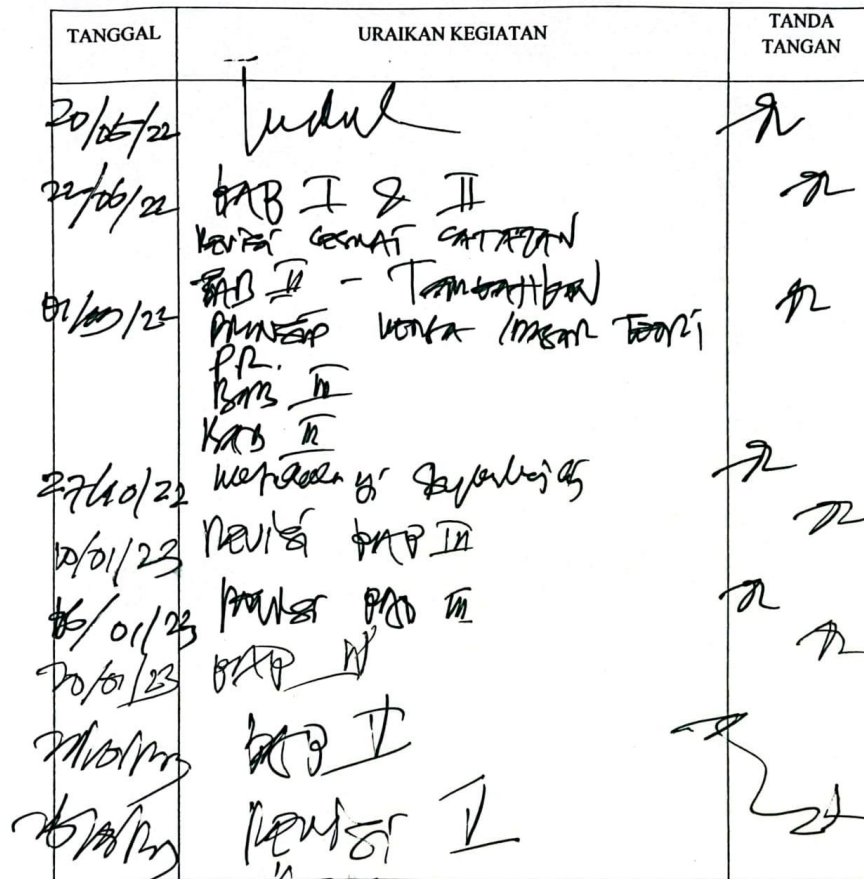 TANGGAL URAIKAN KEGIATAN TANDA TANGAN
20/05/22 Judul
22/06/22 BAB I & II
REVISI SESUAI CATATAN
BAB II - TAMBAHKAN
PRINSIP KERJA / DASAR TEORI
PR.
BAB III
BAB II
27/10/22
10/01/23 REVISI BAB III
16/01/23 REVISI BAB III
20/01/23 BAB IV
BAB V
REVISI V